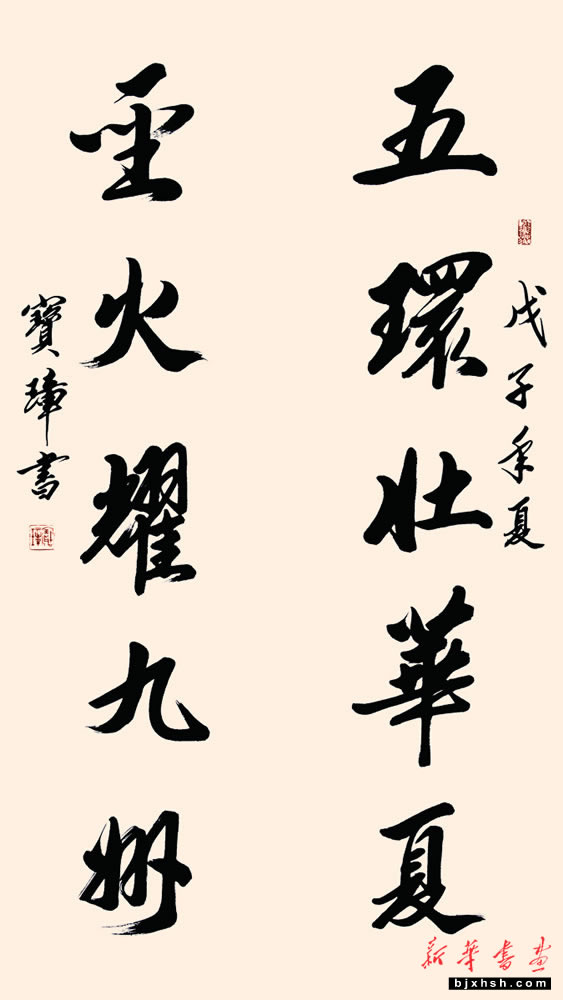 戊子年夏
五環壯華夏
聖火耀九州
寶璋書
新華書畫
bjxhsh.com